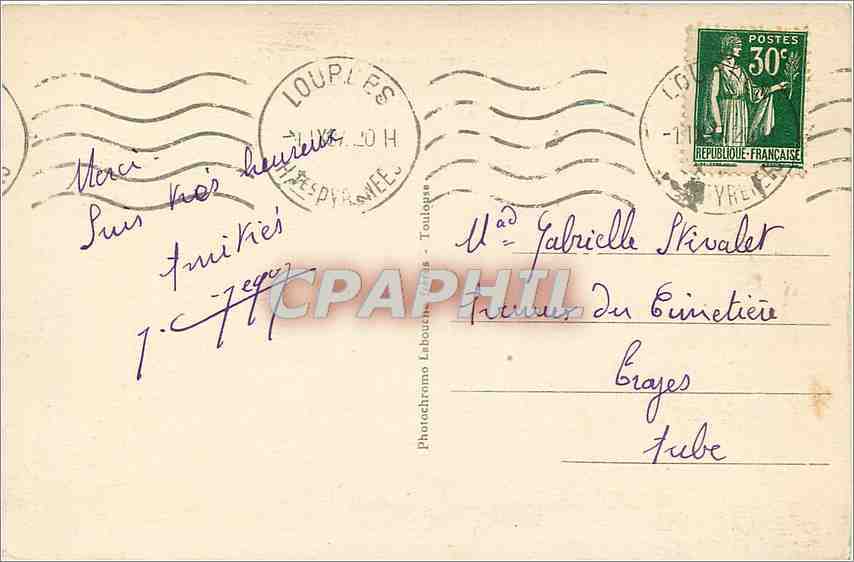 LOURDES
20 H
HTES PYRENEES
POSTES
30c
REPUBLIQUE-FRANÇAISE
Merci.
Suis très heureux
Amitiés
Photochromo Labouche Frères - Toulouse
CPAPHIL
Mad Gabrielle Stivalet
du Cimetière
Troyes
Aube